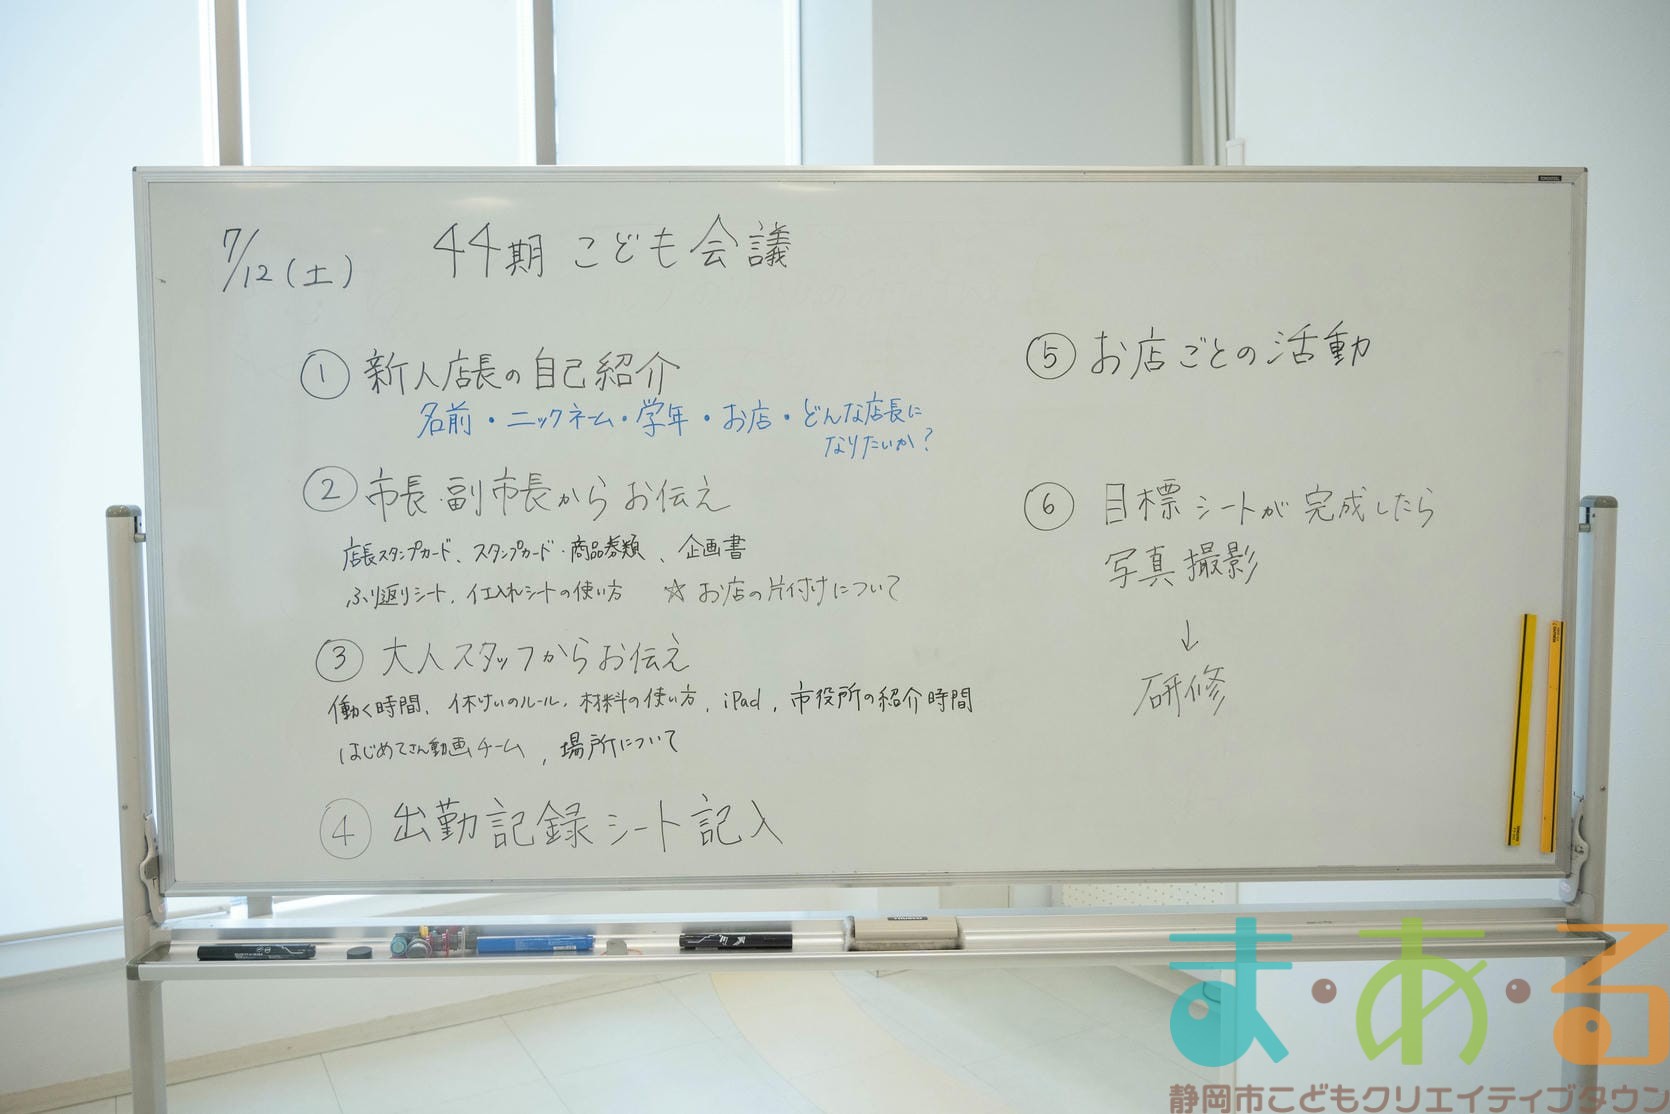 7/12(土) 44期 こども会議
① 新人店長の自己紹介
名前・ニックネーム・学年・お店・どんな店長に
なりたいか?
② 市長・副市長からお伝え
店長スタンプカード、スタンプカード・商品券類、企画書
ふり返りシート、仕入れシートの使い方 ☆お店の片付けについて
③ 大人スタッフからお伝え
働く時間、休けいのルール、材料の使い方、iPad、市役所の紹介時間
はじめてさん動画チーム、場所について
④ 出勤記録シート記入
⑤ お店ごとの活動
⑥ 目標シートが完成したら
写真撮影
↓
研修
ま・あ・る
静岡市こどもクリエイティブタウン